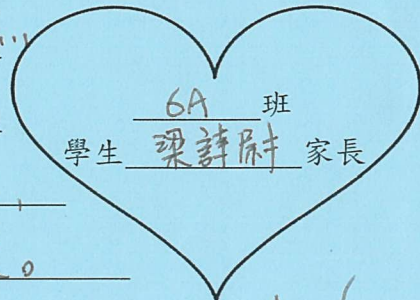 6A 班
學生 梁詩尉 家長